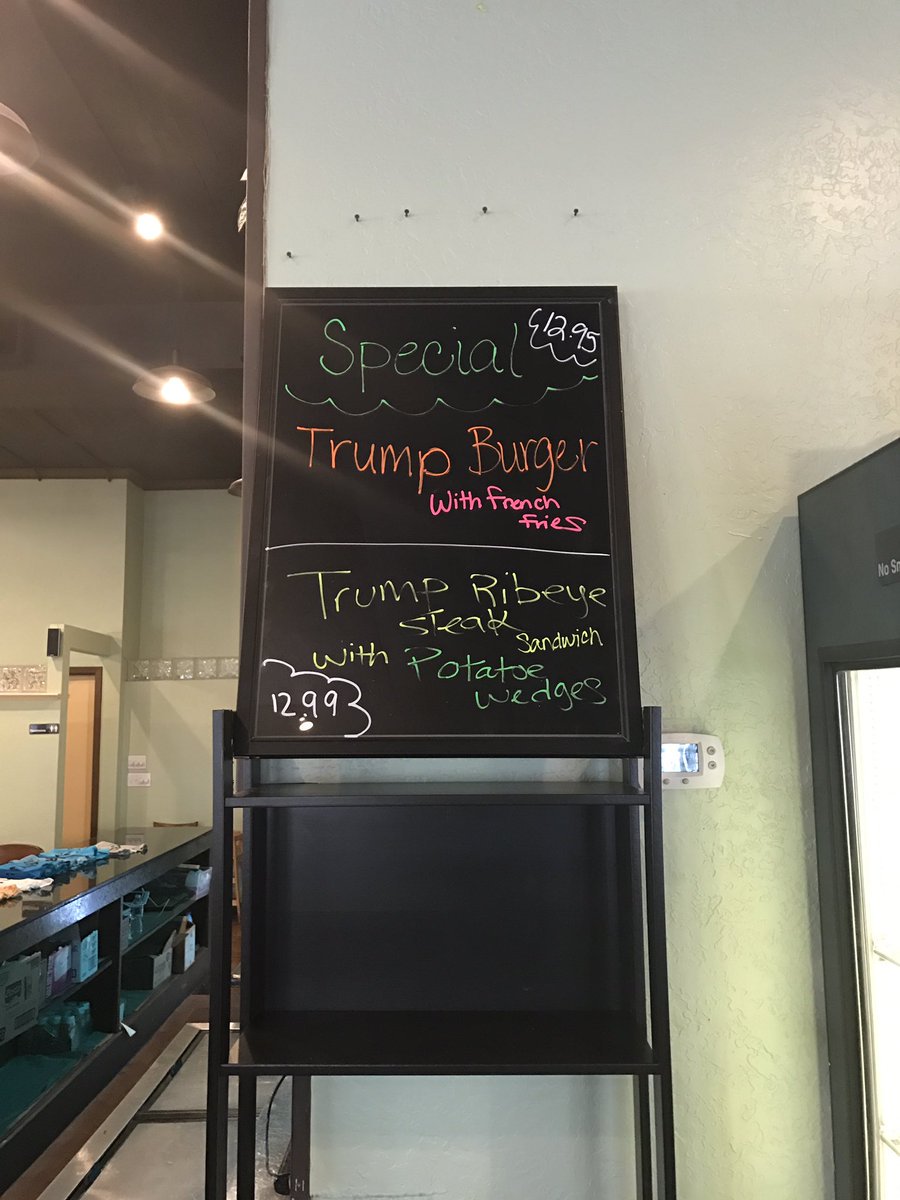 Special
12.95
Trump Burger
With French
Fries
Trump Ribeye
steak
Sandwich
with Potatoe
wedges
12.99
No Sm